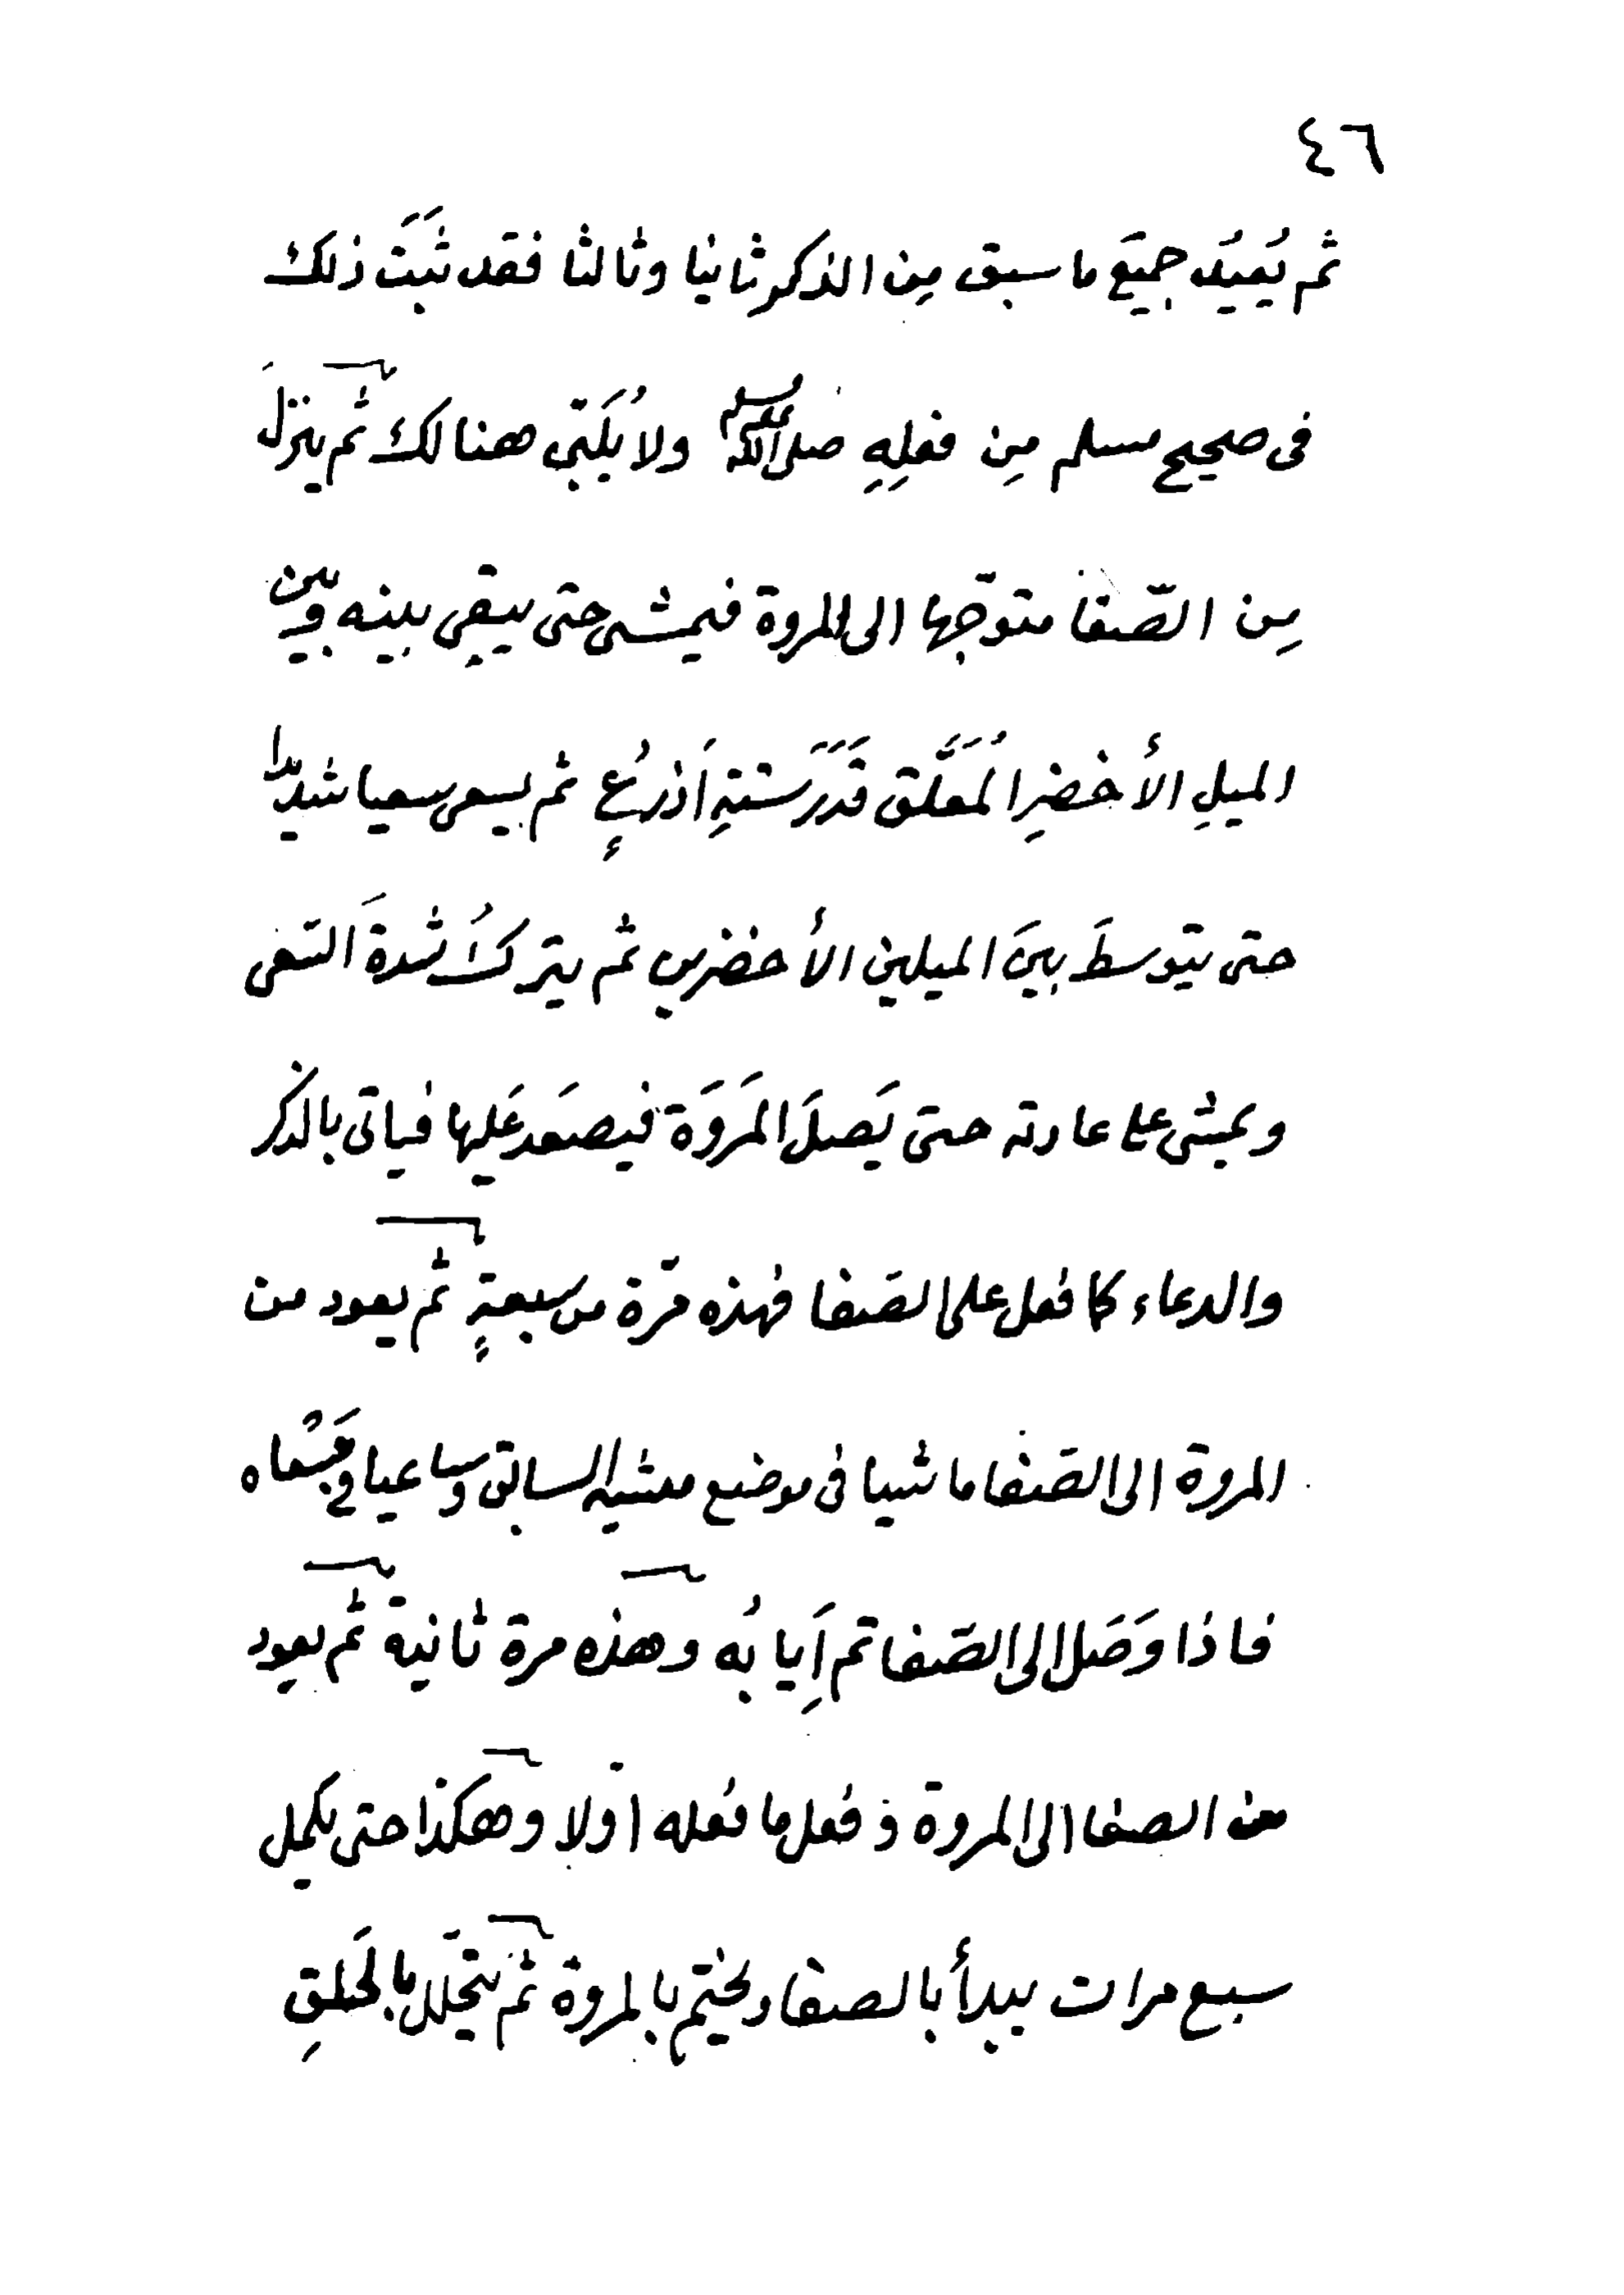 ٤٦
ثم يُعيدُ جميَع ما سبق مِن الذكر ثانيا وثالثا فقد ثبَتَ ذلك
فى صحيح مسلم مِن فعلِهِ صلى الله عليه وسلم ولا يُلَبّى هنالك ثم ينزلَ
مِن الصّفا متوجّها الى المروة فيمشى حتى يبقى بينه وبين
الميلِ الأخضرِ المُعَلَّق قَدَرَ ستةِ اَذرُعٍ ثم يسعى سعيا شديدا
حتى يتوسطَ بينَ الميلين الأخضرين ثم يتركُ شدةَ السّعى
ويمشى على عادته حتى يَصلَ المَروَةَ فيصعَد عَليها فياتى بالذكر
والدعاء كما فعل على الصّفا فهذه مرّة من سبعةٍ ثم يعود من
المروة الى الصّفا ماشيا فى موضع مشيه السابق وساعيا فى مَسْعاه
فاذا وَصَل الى الصّفا تم اِيَابُه وهذه مرة ثانية ثم يعود
من الصفا الى المروة وفعل ما فعله اوّلا وهكذا حتى يكمل
سبع مرات يبدأ بالصفا ويختم بالمروة ثم يتحلّل بالحَلقِ